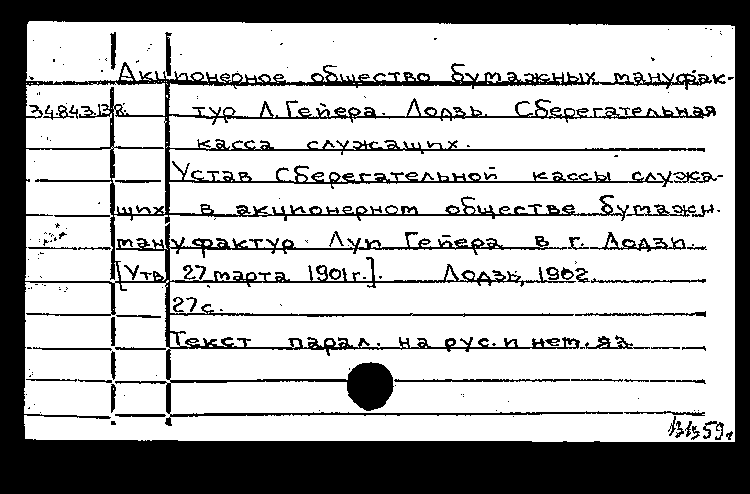 Акционерное общество бумажных мануфак-
34843138. тур Л. Гейера. Лодзь. Сберегательная
касса служащих.
Устав Сберегательной кассы служа-
щих в акционерном обществе бумажн.
мануфактур Луи Гейера в г. Лодзи.
[Утв. 27 марта 1901 г.]. Лодзь, 1902.
27 с.
Текст парал. на рус. и нем. яз.
59 г